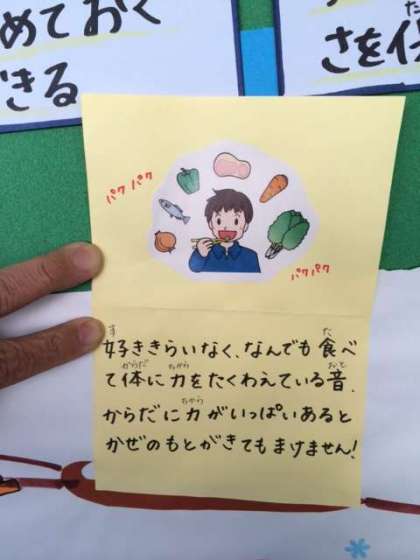 めておく
できる
さを保
パクパク
パクパク
好ききらいなく、なんでも食べ
て体に力をたくわえている音。
からだに力がいっぱいあると
かぜのもとがきてもまけません!